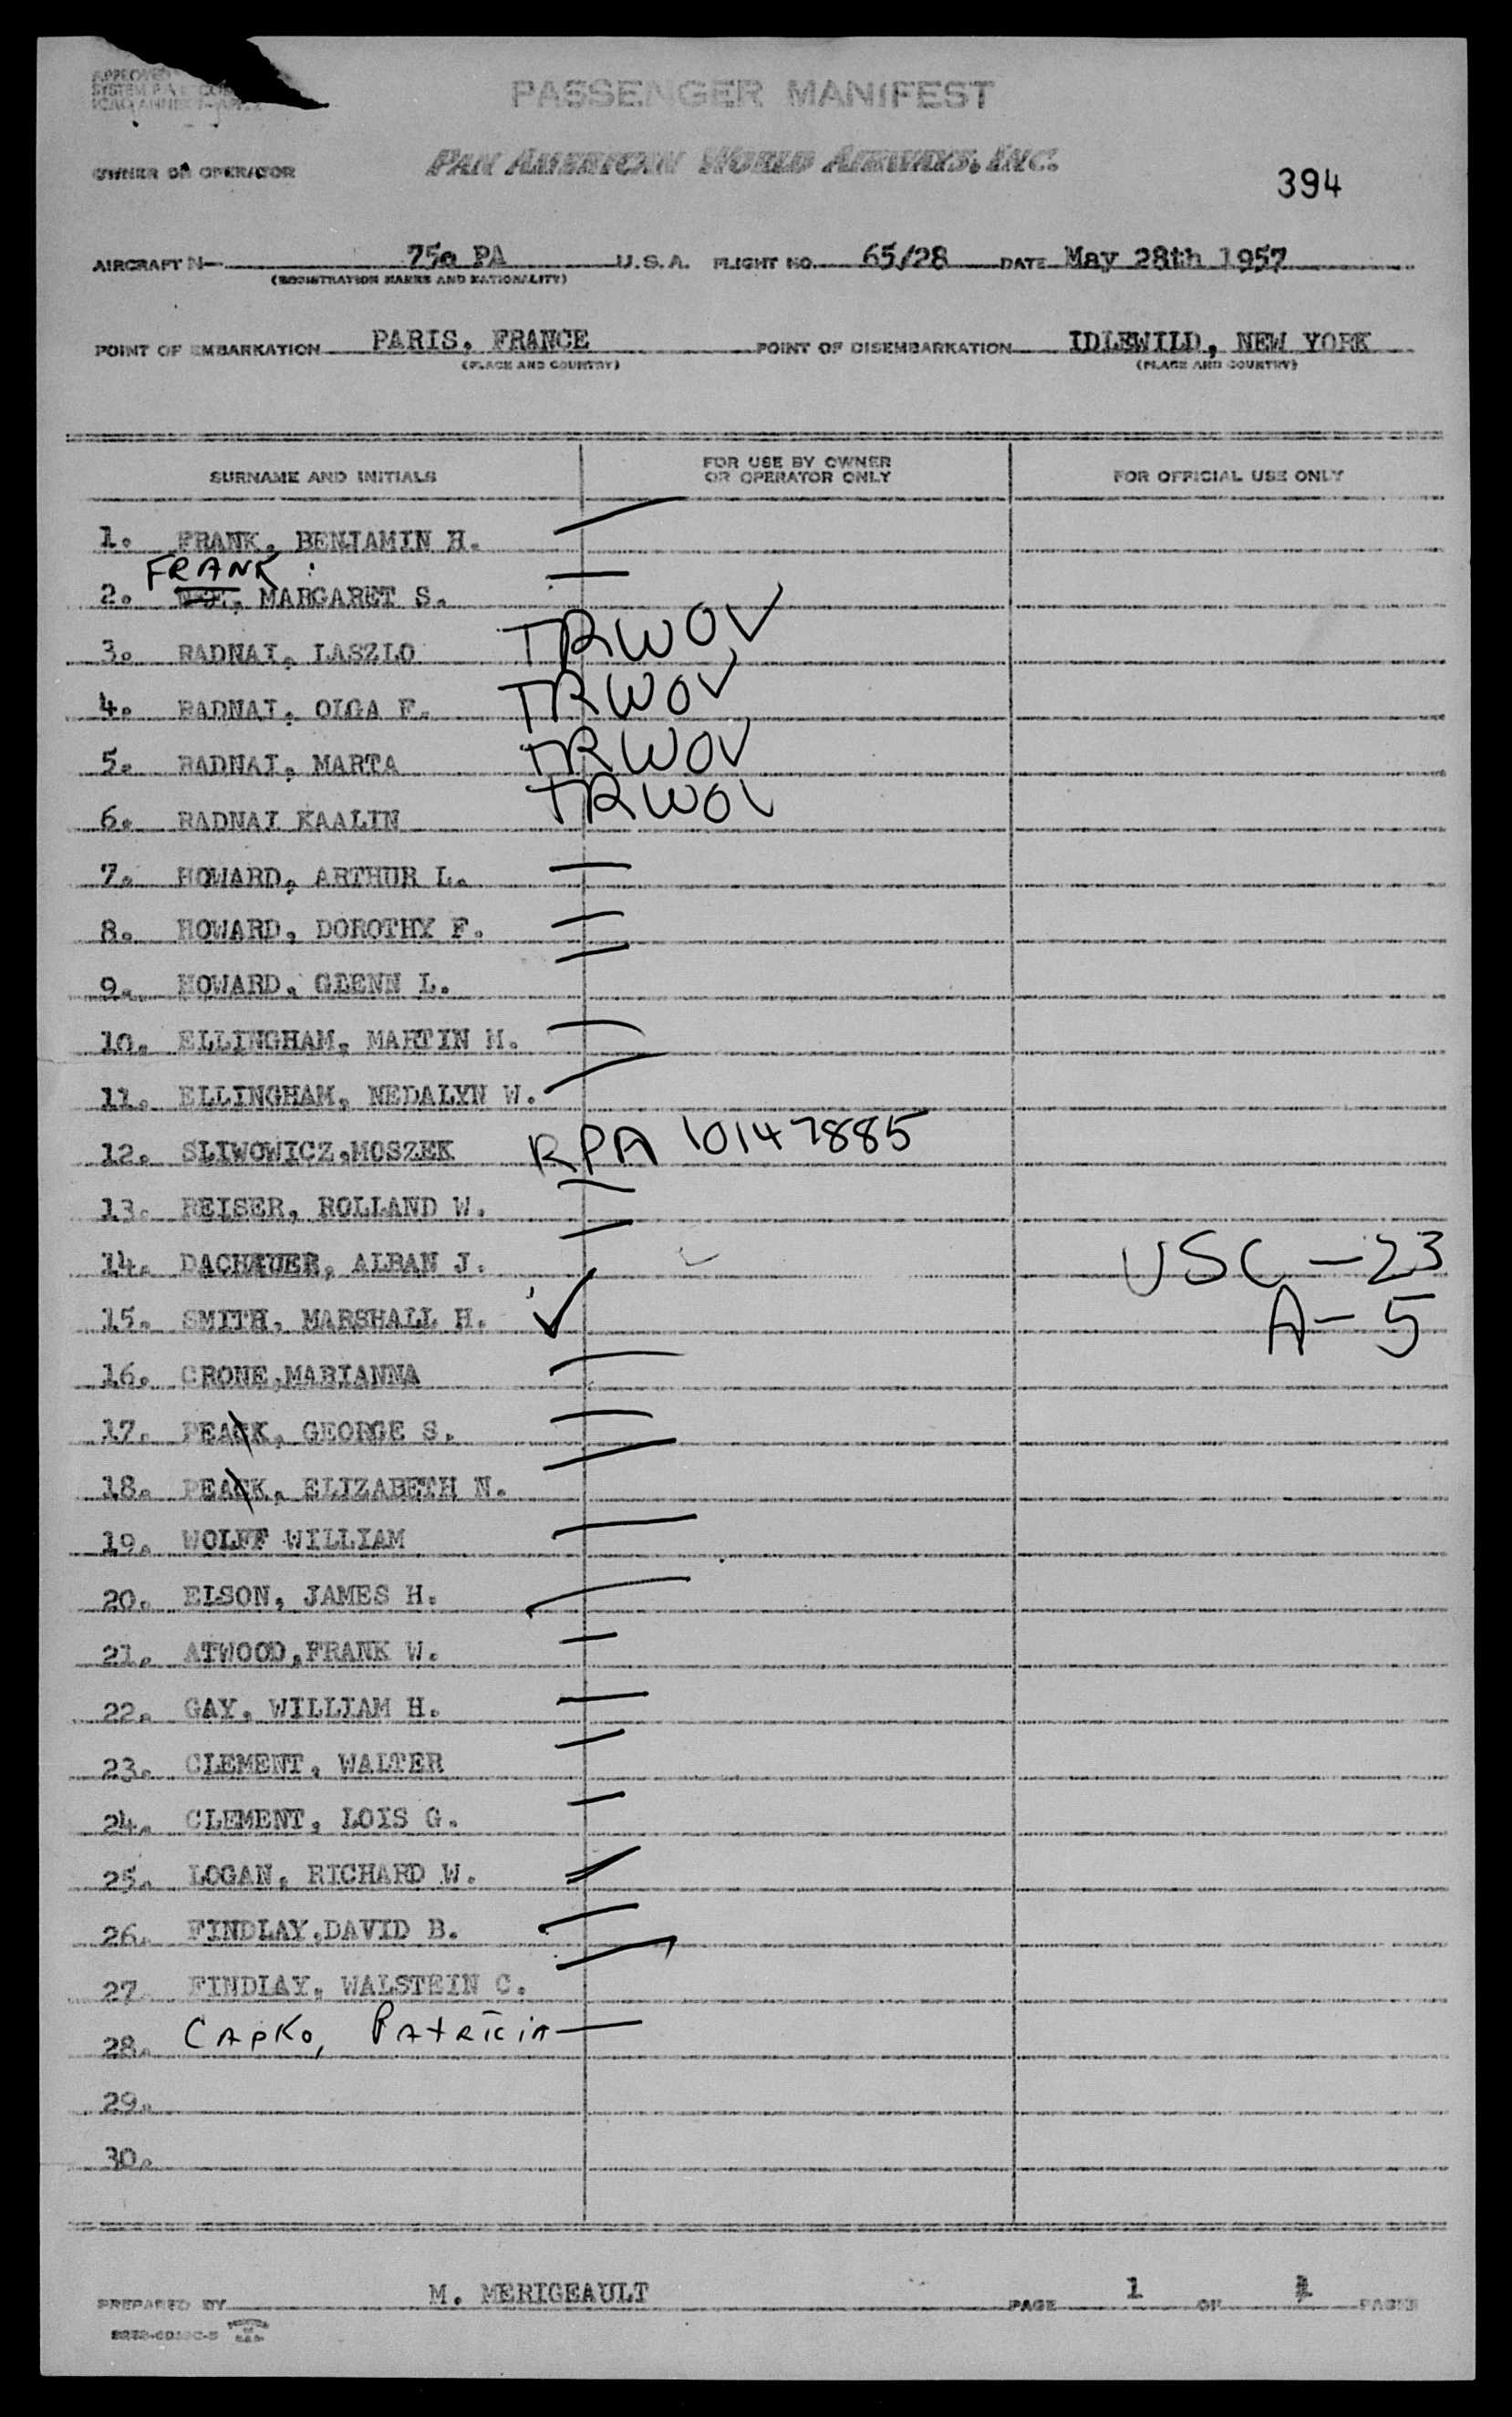 APPROVED
PASSENGER MANIFEST
OWNER OR OPERATOR PAN AMERICAN WORLD AIRWAYS, INC.
394
AIRCRAFT N- 75 PA U.S.A. FLIGHT NO. 65/28 DATE May 28th 1957
(REGISTRATION MARKS AND NATIONALITY)
POINT OF EMBARKATION PARIS, FRANCE POINT OF DISEMBARKATION IDLEWILD, NEW YORK
(PLACE AND COUNTRY) (PLACE AND COUNTRY)
SURNAME AND INITIALS FOR USE BY OWNER OR OPERATOR ONLY FOR OFFICIAL USE ONLY
1. FRANK, BENJAMIN H.
FRANK
2. MARGARET S.
3. RADNAI, LASZLO TRWOV
4. RADNAI, OLGA F. TRWOV
5. RADNAI, MARTA TRWOV
6. RADNAI KAALIN TRWOV
7. HOWARD, ARTHUR L.
8. HOWARD, DOROTHY F.
9. HOWARD, GLENN L.
10. ELLINGHAM, MARTIN M.
11. ELLINGHAM, NEDALYN W.
12. SLIWOWICZ,MOSZEK RPA 10147885
13. REISER, ROLLAND W.
14. DACHAUER, ALBAN J. USC - 23
15. SMITH, MARSHALL H. A - 5
16. CRONE,MARIANNA
17. PEACK, GEORGE S.
18. PEACK, ELIZABETH N.
19. WOLFF WILLIAM
20. ELSON, JAMES H.
21. ATWOOD,FRANK W.
22. GAY, WILLIAM H.
23. CLEMENT, WALTER
24. CLEMENT, LOIS G.
25. LOGAN, RICHARD W.
26. FINDLAY,DAVID B.
27 FINDLAY, WALSTEIN C.
28. CAPKO, PATRICIA
29.
30.
PREPARED BY M. MERIGEAULT PAGE 1 OF 1 PAGES